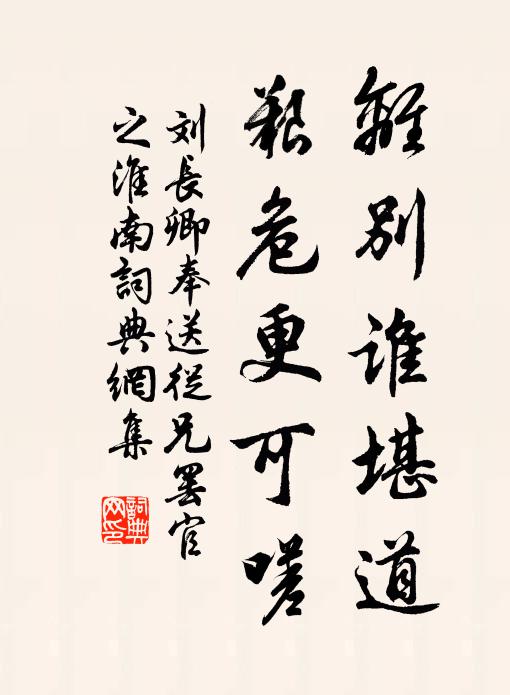 離別谁堪道
艱危更可嗟
刘長卿奉送從兄罢官
之淮南詞典網集
詞典
网印